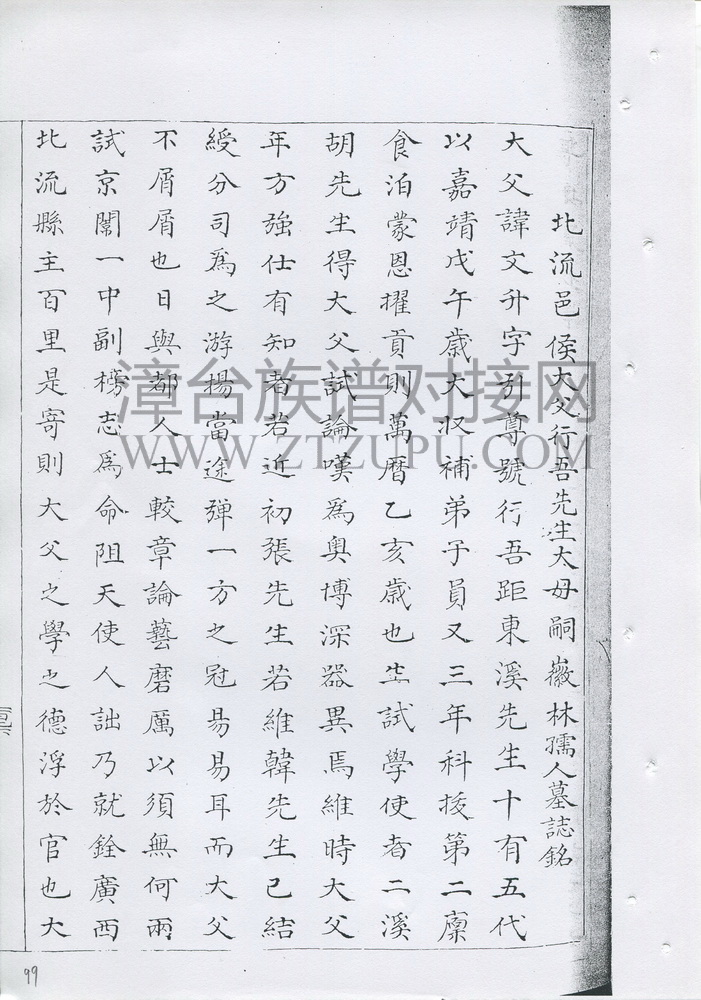 北流邑侯大父行吾先生大母嗣徽林孺人墓誌銘
大父諱文升字引尊號行吾距東溪先生十有五代
以嘉靖戊午歲大收補弟子員又三年科拔第二廩
食泊蒙恩擢貢則萬曆乙亥歲也生試學使者二溪
胡先生得大父試論嘆爲奧博深器異焉維時大父
年方強仕有知者若近初張先生若維韓先生已結
綬分司爲之游揚當途彈一方之冠易易耳而大父
不屑屑也日與都人士較章論藝磨厲以須無何兩
試京闈一中副榜志爲命阻天使人詘乃就銓廣西
北流縣主百里是寄則大父之學之德浮於官也大
漳台族谱对接网
WWW.ZTZUPU.COM
99